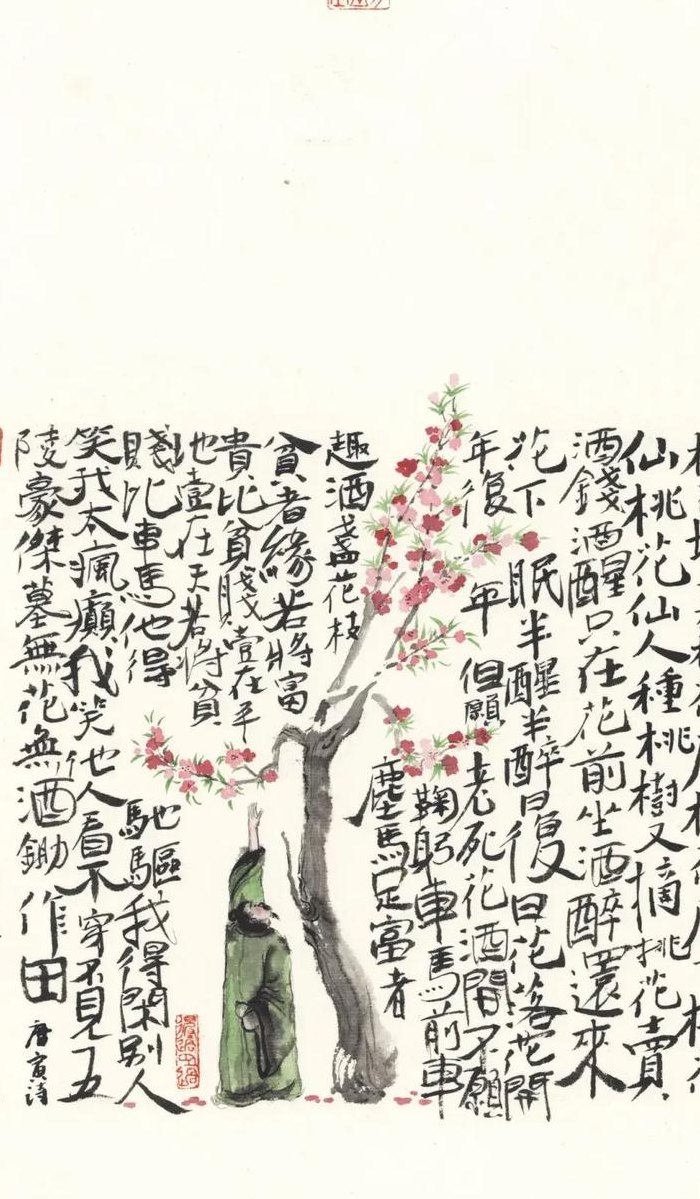 仙桃花仙人種桃樹又摘桃花賣
酒錢酒醒只在花前坐酒醉還來
花下眠半醒半醉日復日花落花開
年復年但願老死花酒間不願
鞠躬車馬前車
塵馬足富者
趣酒盞花枝
貧者緣若將富
貴比貧賤壹在平
地壹在天若將貧
賤比車馬他得馳驅我得閑別人
笑我太瘋癲我笑他人看不穿不見五
陵豪傑墓無花無酒鋤作田
唐寅詩